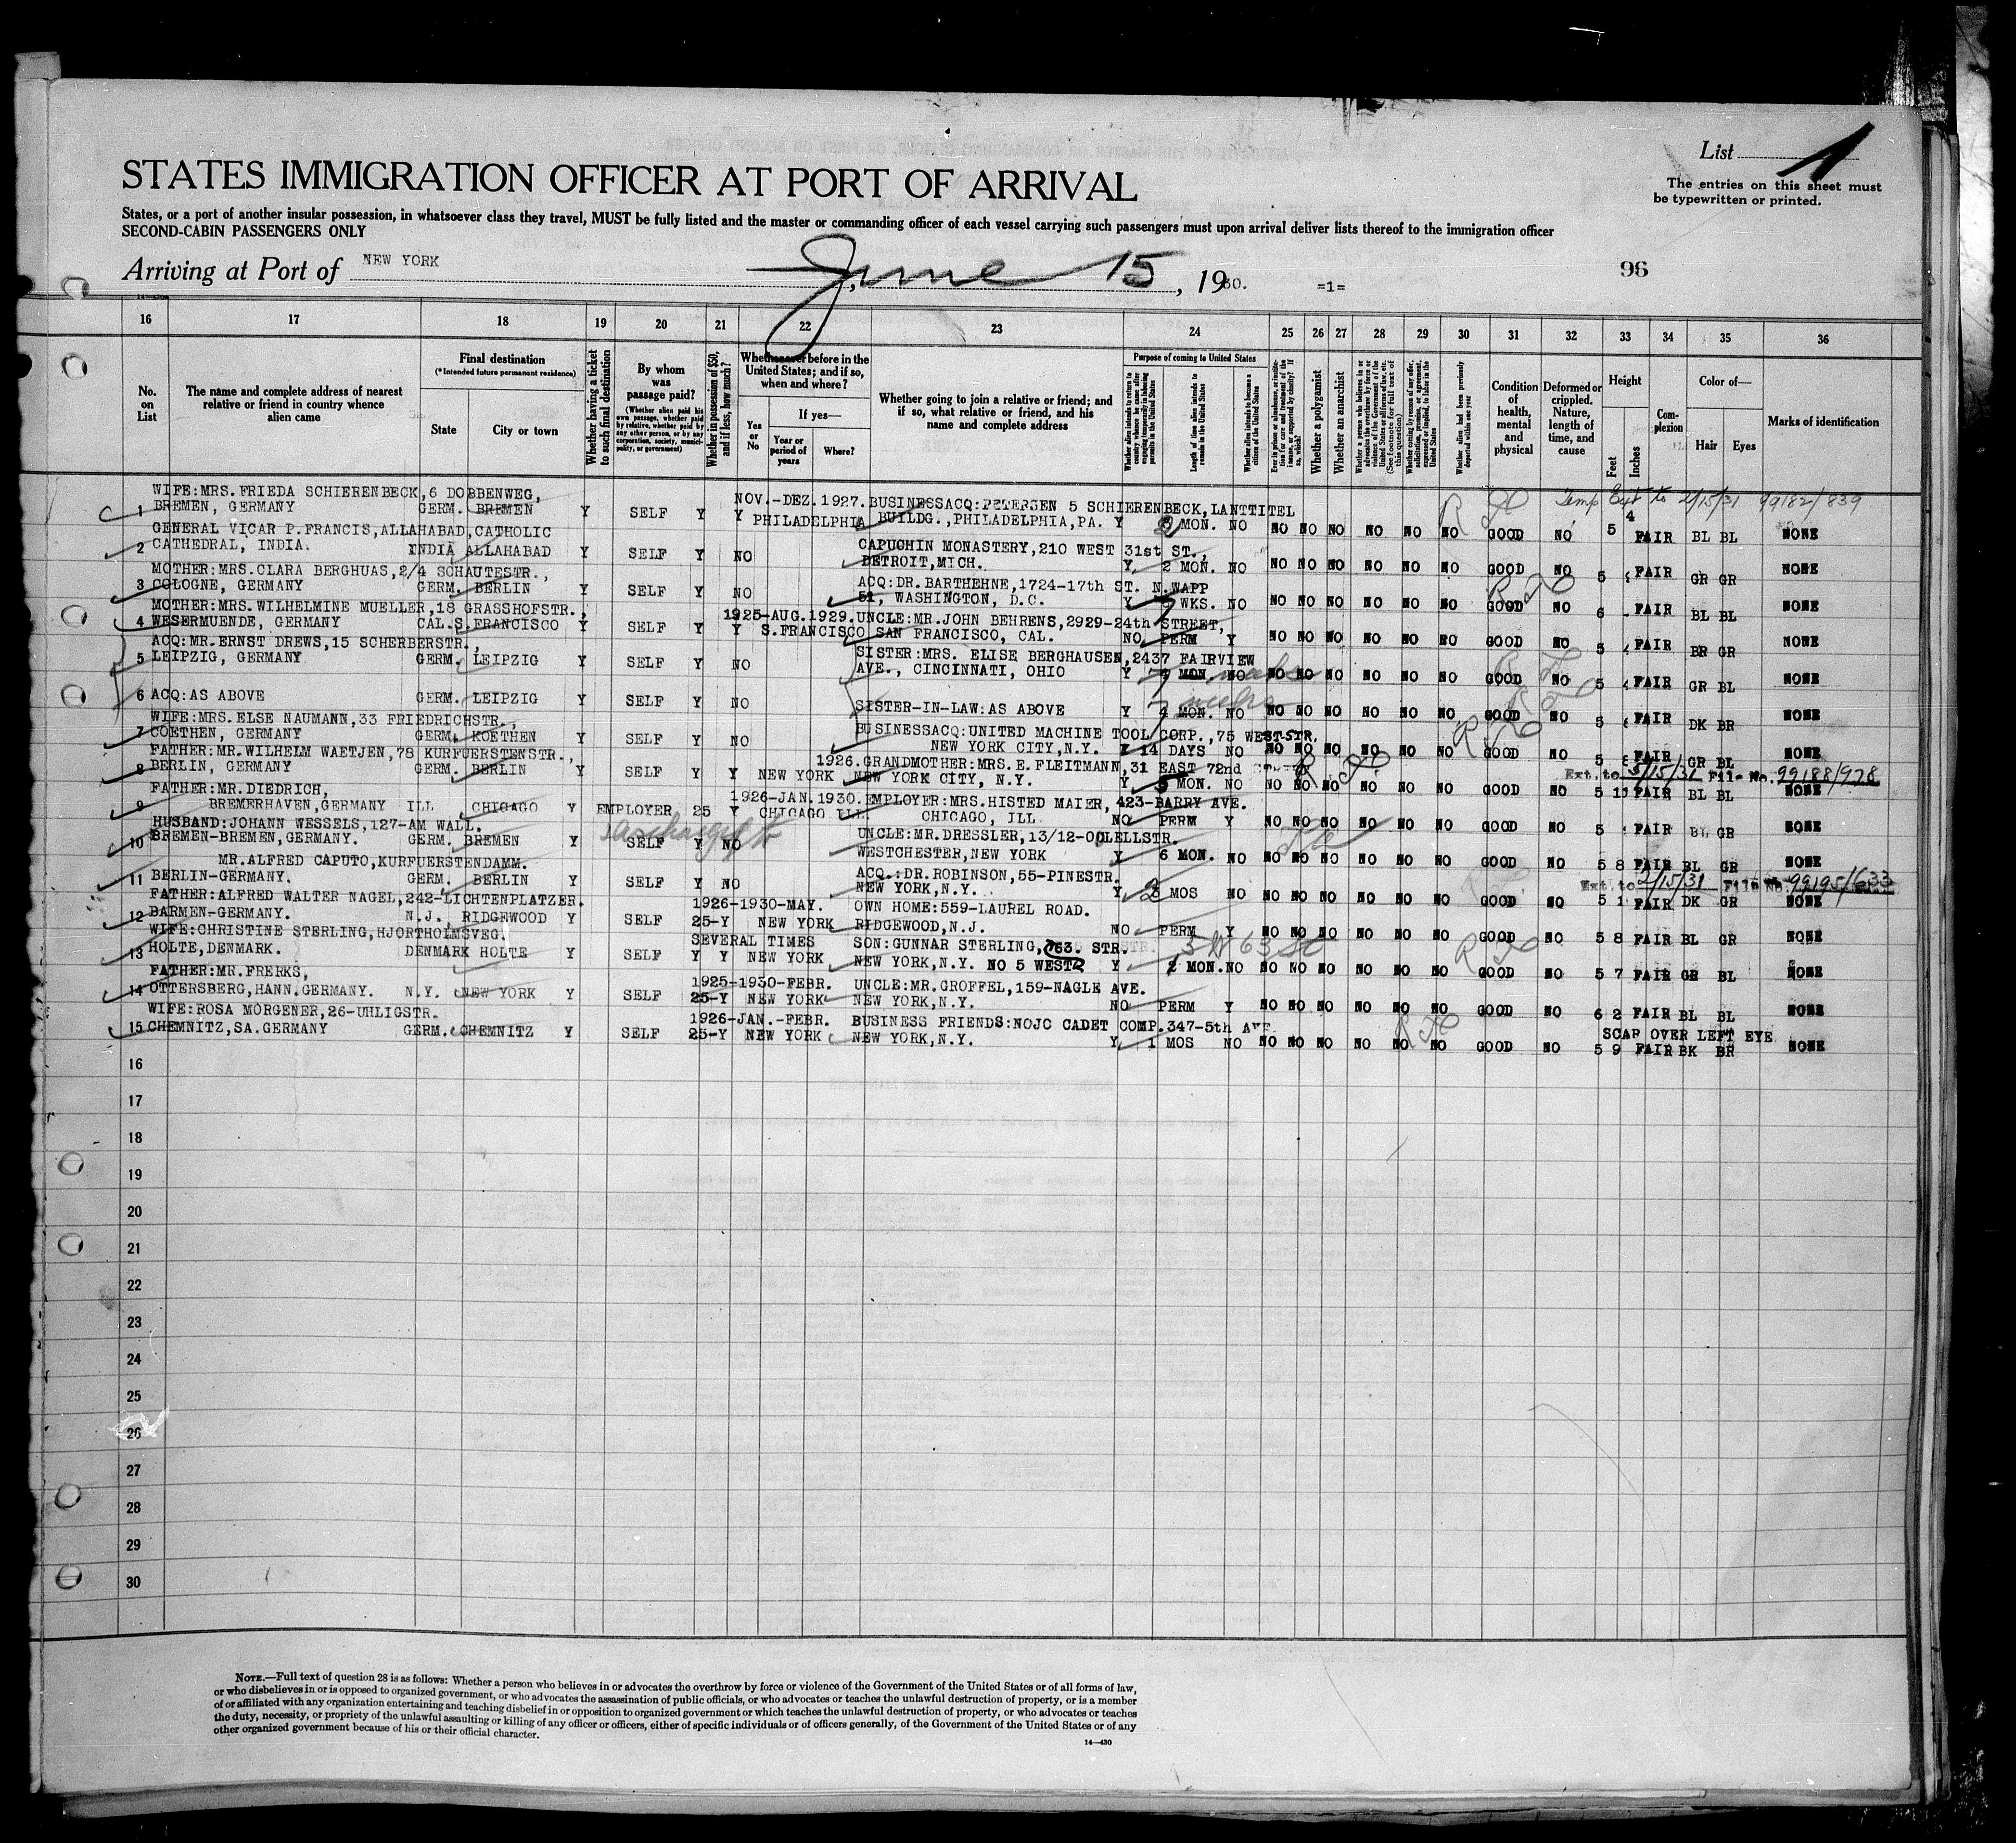 List 1
The entries on this sheet must
be typewritten or printed.
STATES IMMIGRATION OFFICER AT PORT OF ARRIVAL
States, or a port of another insular possession, in whatsoever class they travel, MUST be fully listed and the master or commanding officer of each vessel carrying such passengers must upon arrival deliver lists thereof to the immigration officer
SECOND-CABIN PASSENGERS ONLY
Arriving at Port of NEW YORK , June 15 , 1930. =1= 96
16 17 18 19 20 21 22 23 24 25 26 27 28 29 30 31 32 33 34 35 36
No. on List
The name and complete address of nearest relative or friend in country whence alien came
Final destination
(*Intended future permanent residence)
State
City or town
Whether having a ticket to such final destination
By whom was passage paid?
(Whether alien paid his own passage, whether paid by relative, whether paid by any other person, or by any corporation, society, municipality, or government)
Whether in possession of $50, and if less, how much?
Whether ever before in the United States; and if so, when and where?
Yes or No
If yes—
Year or period of years
Where?
Whether going to join a relative or friend; and if so, what relative or friend, and his name and complete address
Purpose of coming to United States
Whether alien intends to return to country whence he came after engaging temporarily in laboring pursuits in the United States
Length of time alien intends to remain in the United States
Whether alien intends to become a citizen of the United States
Whether a polygamist
Whether an anarchist
Whether alien had been previously deported within one year
Condition of health, mental and physical
Deformed or crippled. Nature, length of time, and cause
Height
Feet
Inches
Complexion
Color of—
Hair
Eyes
Marks of identification
WIFE:MRS.FRIEDA SCHIERENBECK,6 DOBBENWEG, NOV.-DEZ.1927.BUSINESSACQ:PETERSEN 5 SCHIERENBECK,LANTTITEL Temp Ext to 2/15/31 99182/839
1 BREMEN, GERMANY GERM. BREMEN Y SELF Y Y PHILADELPHIA BUILDG.,PHILADELPHIA,PA. Y MON. NO NO NO NO NO NO NO GOOD NO 5 4 FAIR BL BL NONE
GENERAL VICAR P.FRANCIS,ALLAHABAD,CATHOLIC CAPUCHIN MONASTERY,210 WEST 31st ST.,
2 CATHEDRAL, INDIA. INDIA ALLAHABAD Y SELF Y NO DETROIT,MICH. Y 2 MON. NO NO NO NO NO NO NO GOOD NO 5 FAIR GR GR NONE
MOTHER:MRS.CLARA BERGHUAS,2/4 SCHAUTESTR., ACQ:DR.BARTHEHNE,1724-17th ST. N.WAPP
3 COLOGNE, GERMANY GERM. BERLIN Y SELF Y NO 51, WASHINGTON, D.C. Y WKS. NO NO NO NO NO NO NO GOOD NO 6 FAIR BL BL NONE
MOTHER:MRS.WILHELMINE MUELLER,18 GRASSHOFSTR., 1925-AUG.1929.UNCLE:MR.JOHN BEHRENS,2929-24th STREET,
4 WESERMUENDE, GERMANY CAL.S.FRANCISCO Y SELF Y Y S.FRANCISCO SAN FRANCISCO, CAL. NO PERM Y NO NO NO NO NO NO GOOD NO 5 FAIR BR GR NONE
ACQ:MR.ERNST DREWS,15 SCHERBERSTR., SISTER:MRS. ELISE BERGHAUSEN,2437 FAIRVIEW
5 LEIPZIG, GERMANY GERM. LEIPZIG Y SELF Y NO AVE., CINCINNATI, OHIO Y MON. NO NO NO NO NO NO NO GOOD NO 5 FAIR GR BL NONE
6 ACQ:AS ABOVE GERM. LEIPZIG Y SELF Y NO SISTER-IN-LAW:AS ABOVE Y 4 MON. NO NO NO NO NO NO NO GOOD NO 5 FAIR DK BR NONE
WIFE:MRS.ELSE NAUMANN,33 FRIEDRICHSTR., BUSINESSACQ:UNITED MACHINE TOOL CORP.,75 WEST-STR.
7 COETHEN, GERMANY GERM. KOETHEN Y SELF Y NO NEW YORK CITY,N.Y. Y 14 DAYS NO NO NO NO NO NO NO GOOD NO 5 FAIR GR BL NONE
FATHER:MR.WILHELM WAETJEN,78 KURFUERSTENSTR., 1926.GRANDMOTHER:MRS.E.FLEITMANN,31 EAST 72nd Ext. to 5/15/31 File No. 99188/978
8 BERLIN, GERMANY GERM. BERLIN Y SELF Y Y NEW YORK NEW YORK CITY, N.Y. Y 5 MON. NO NO NO NO NO NO NO GOOD NO 5 11 FAIR BL BL NONE
FATHER:MR.DIEDRICH, 1926-JAN.1930.EMPLOYER:MRS.HISTED MAIER,423-BARRY AVE.
9 BREMERHAVEN,GERMANY ILL CHICAGO Y EMPLOYER 25 Y CHICAGO ILL CHICAGO, ILL NO PERM Y NO NO NO NO NO NO GOOD NO 5 FAIR BL GR NONE
HUSBAND:JOHANN WESSELS,127-AM WALL. UNCLE:MR.DRESSLER,13/12-ODLELLSTR.
10 BREMEN-BREMEN,GERMANY. GERM. BREMEN Y SELF Y NO WESTCHESTER,NEW YORK Y 6 MON. NO NO NO NO NO NO NO GOOD NO 5 8 FAIR BL GR NONE
MR.ALFRED CAPUTO,KURFUERSTENDAMM. ACQ.:DR.ROBINSON,55-PINESTR. Ext. to 2/15/31 File No. 99195/633
11 BERLIN-GERMANY. GERM. BERLIN Y SELF Y NO NEW YORK,N.Y. Y 2 MOS NO NO NO NO NO NO NO GOOD NO 5 1 FAIR DK GR NONE
FATHER:ALFRED WALTER NAGEL,242-LICHTENPLATZER. 1926-1930-MAY. OWN HOME:559-LAUREL ROAD.
12 BARMEN-GERMANY. N.J. RIDGEWOOD Y SELF 25-Y NEW YORK RIDGEWOOD,N.J. NO PERM Y NO NO NO NO NO NO GOOD NO 5 8 FAIR BL GR NONE
WIFE:CHRISTINE STERLING,HJORTHOLMSVEG. SEVERAL TIMES SON:GUNNAR STERLING, 763. STR. 5 W 63 St
13 HOLTE,DENMARK. DENMARK HOLTE Y SELF Y Y NEW YORK NEW YORK,N.Y. NO 5 WEST Y 2 MON.NO NO NO NO NO NO NO GOOD NO 5 7 FAIR GR BL NONE
FATHER:MR.FRERKS, 1925-1930-FEBR. UNCLE:MR.GROFFEL,159-NAGLE AVE.
14 OTTERSBERG,HANN.GERMANY. N.Y. NEW YORK Y SELF 25-Y NEW YORK NEW YORK,N.Y. NO PERM Y NO NO NO NO NO NO GOOD NO 6 2 FAIR BL BL NONE
WIFE:ROSA MORGENER,26-UHLIGSTR. 1926-JAN.-FEBR. BUSINESS FRIENDS:NOJC CADET COMP.347-5th AVE SCAR OVER LEFT EYE
15 CHEMNITZ,SA.GERMANY GERM. CHEMNITZ Y SELF 25-Y NEW YORK NEW YORK,N.Y. Y 1 MOS NO NO NO NO NO NO NO GOOD NO 5 9 FAIR BK BR NONE
16
17
18
19
20
21
22
23
24
25
26
27
28
29
30
NOTE.—Full text of question 28 is as follows: Whether a person who believes in or advocates the overthrow by force or violence of the Government of the United States or of all forms of law,
or who disbelieves in or is opposed to organized government, or who advocates the assassination of public officials, or who advocates or teaches the unlawful destruction of property, or is a member
of or affiliated with any organization entertaining and teaching disbelief in or opposition to organized government or which teaches the unlawful destruction of property, or who advocates or teaches
the duty, necessity, or propriety of the unlawful assaulting or killing of any officer or officers, either of specific individuals or of officers generally, of the Government of the United States or of any
other organized government because of his or their official character.
14—430